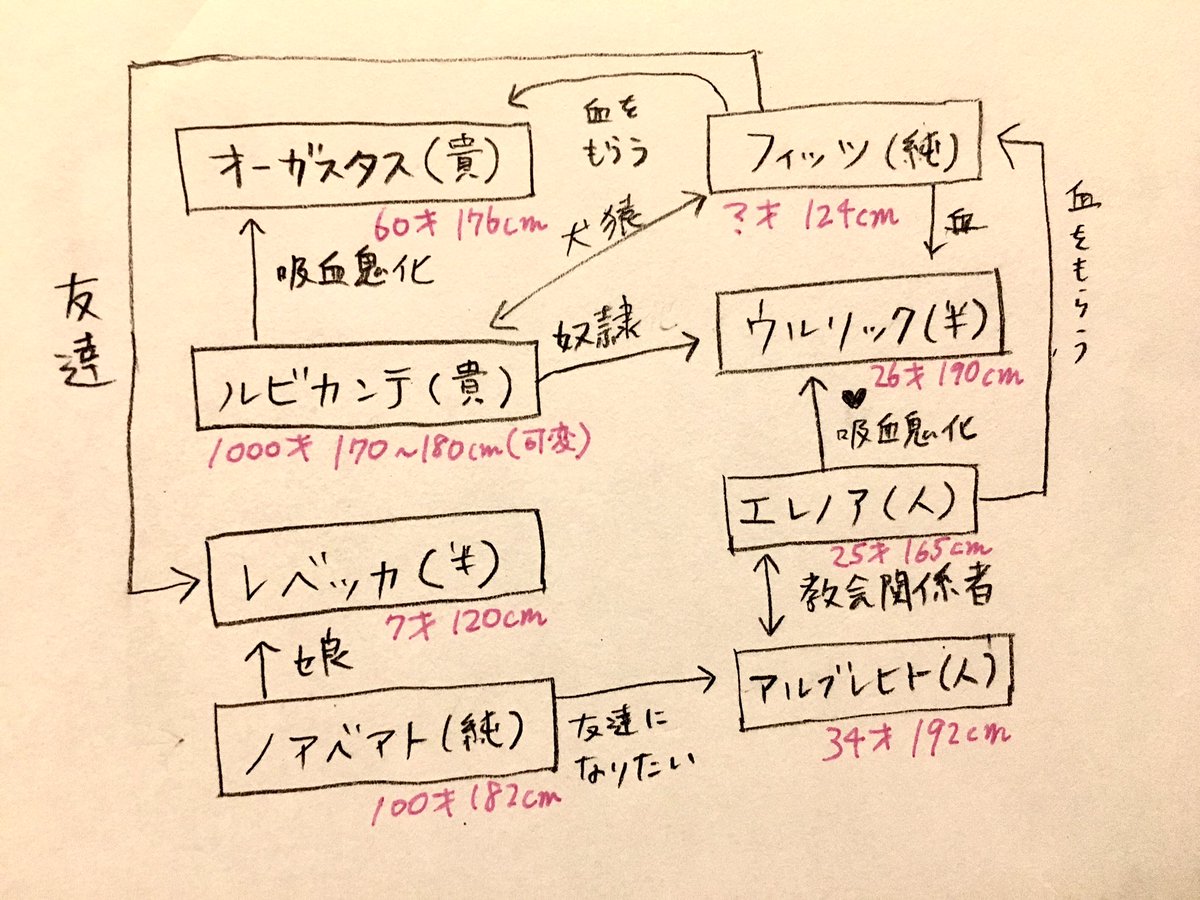 血を
もらう
オーガスタス(貴)
60才 176cm
フィッツ(純)
?才 124cm
犬猿
血
血をもらう
吸血鬼化
友達
奴隷
ウルリック(半)
26才 190cm
ルビカンテ(貴)
1000才 170~180cm(可変)
♥
吸血鬼化
エレノア(人)
25才 165cm
レベッカ(半)
7才 120cm
教会関係者
娘
アルブレヒト(人)
34才 192cm
ノアベアト(純)
100才 182cm
友達に
なりたい